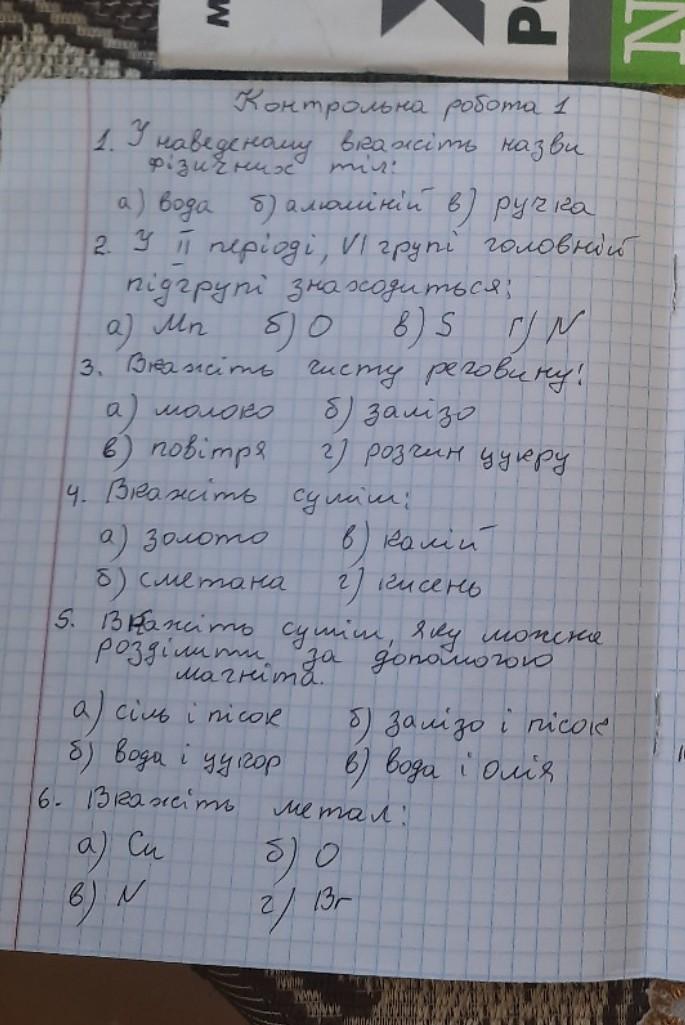 м
РО
N
Контрольна робота 1
1. У наведеному вкажіть назви
фізичних тіл:
а) вода б) алюміній в) ручка
2. У II періоді, VI групі головній
підгрупі знаходиться:
а) Mn б) O в) S г) N
3. Вкажіть чисту речовину:
а) молоко б) залізо
в) повітря г) розчин цукру
4. Вкажіть суміш:
а) золото в) калій
б) сметана г) кисень
5. Вкажіть суміш, яку можна
розділити за допомогою
магніта.
а) сіль і пісок б) залізо і пісок
б) вода і цукор в) вода і олія
6. Вкажіть метал:
а) Cu б) O
в) N г) Br